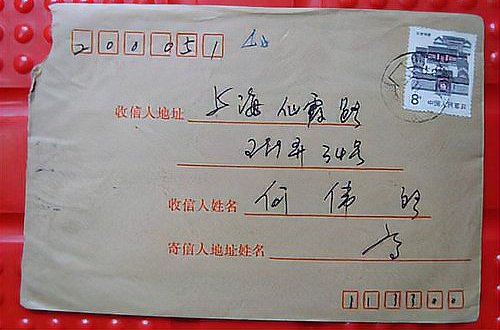 200051
收信人地址 上海仙霞路
34号
收信人姓名 何伟
寄信人地址姓名
113300
8
中国人民邮政